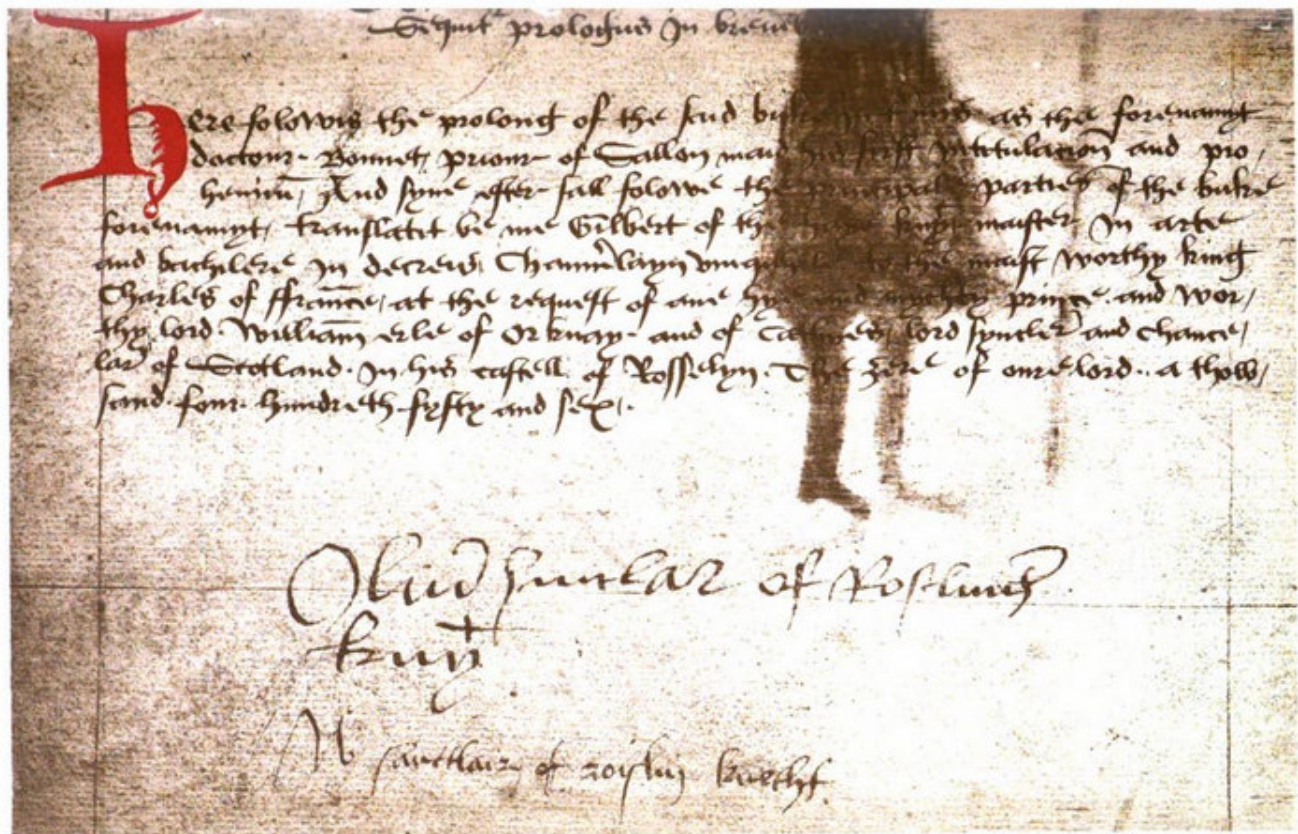 Sequit prologus in
Here folowis the prolong of the said buke as the forenamyt
doctour Bonnet, priour of Sallon maid his first intitulacion and pro,
hemium, And syne efter sall folowe the principale parties of the buke
forenamyt, translatit be me Gilbert of the Haye knyt maister in arte
and bachilere in decreis, Chaumerlayn umquhile to the maist worthy king
Charles of ffraunce, at the request of ane hye and mychty prince and wor,
thy lord William erle of Orknay and of Cathnes, lord synclere and chance,
lare of Scotland. In his castell of Rosselyn. The ȝere of oure lord. a thow,
sand four hundreth fyfty and sex.
Oliver Sinclar of Rosline
knyt
W sanctclair of roislin knecht